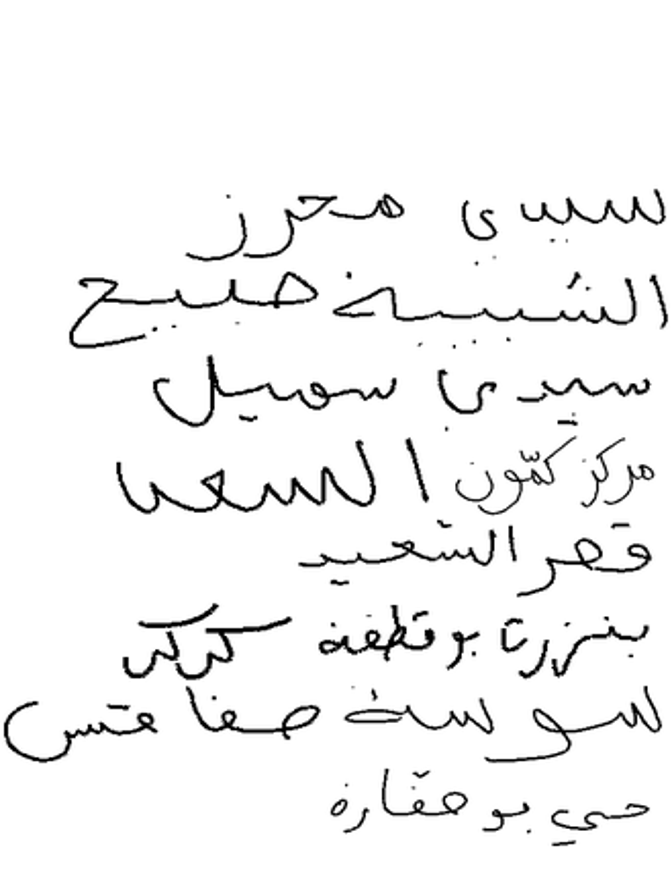 سيدي محرز
الشبيبة خليج
سيدي سهيل
مركز كمّون
قصر السعيد
بنزرتا بوقطفة كركر
سوسة صفاقس
حي بوصفارة